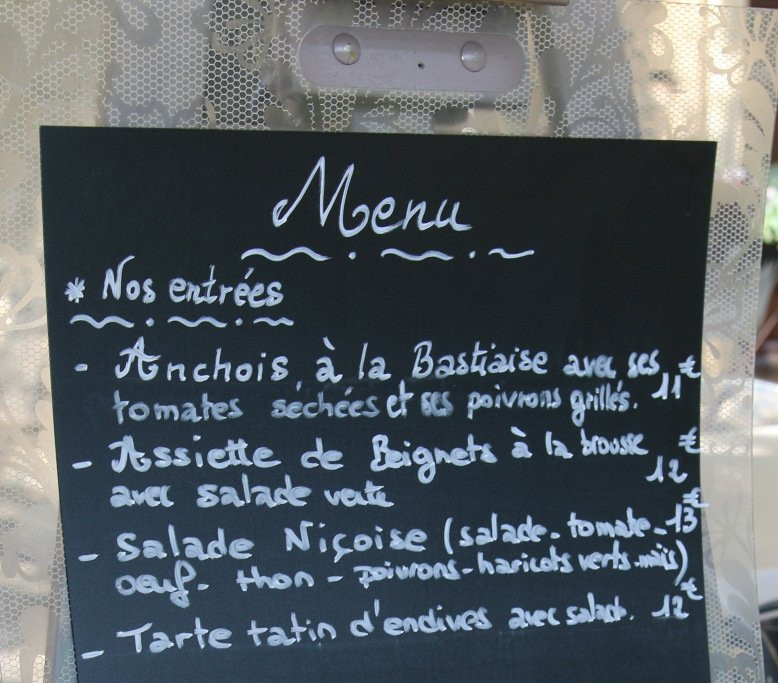 Menu
* Nos entrées
- Anchois à la Bastiaise avec ses
tomates séchées et ses poivrons grillés. 11€
- Assiette de Beignets à la brousse
avec salade verte 12€
- Salade Niçoise (salade - tomate - 13€
oeuf - thon - poivrons - haricots verts - maïs)
- Tarte tatin d'endives avec salade. 12€